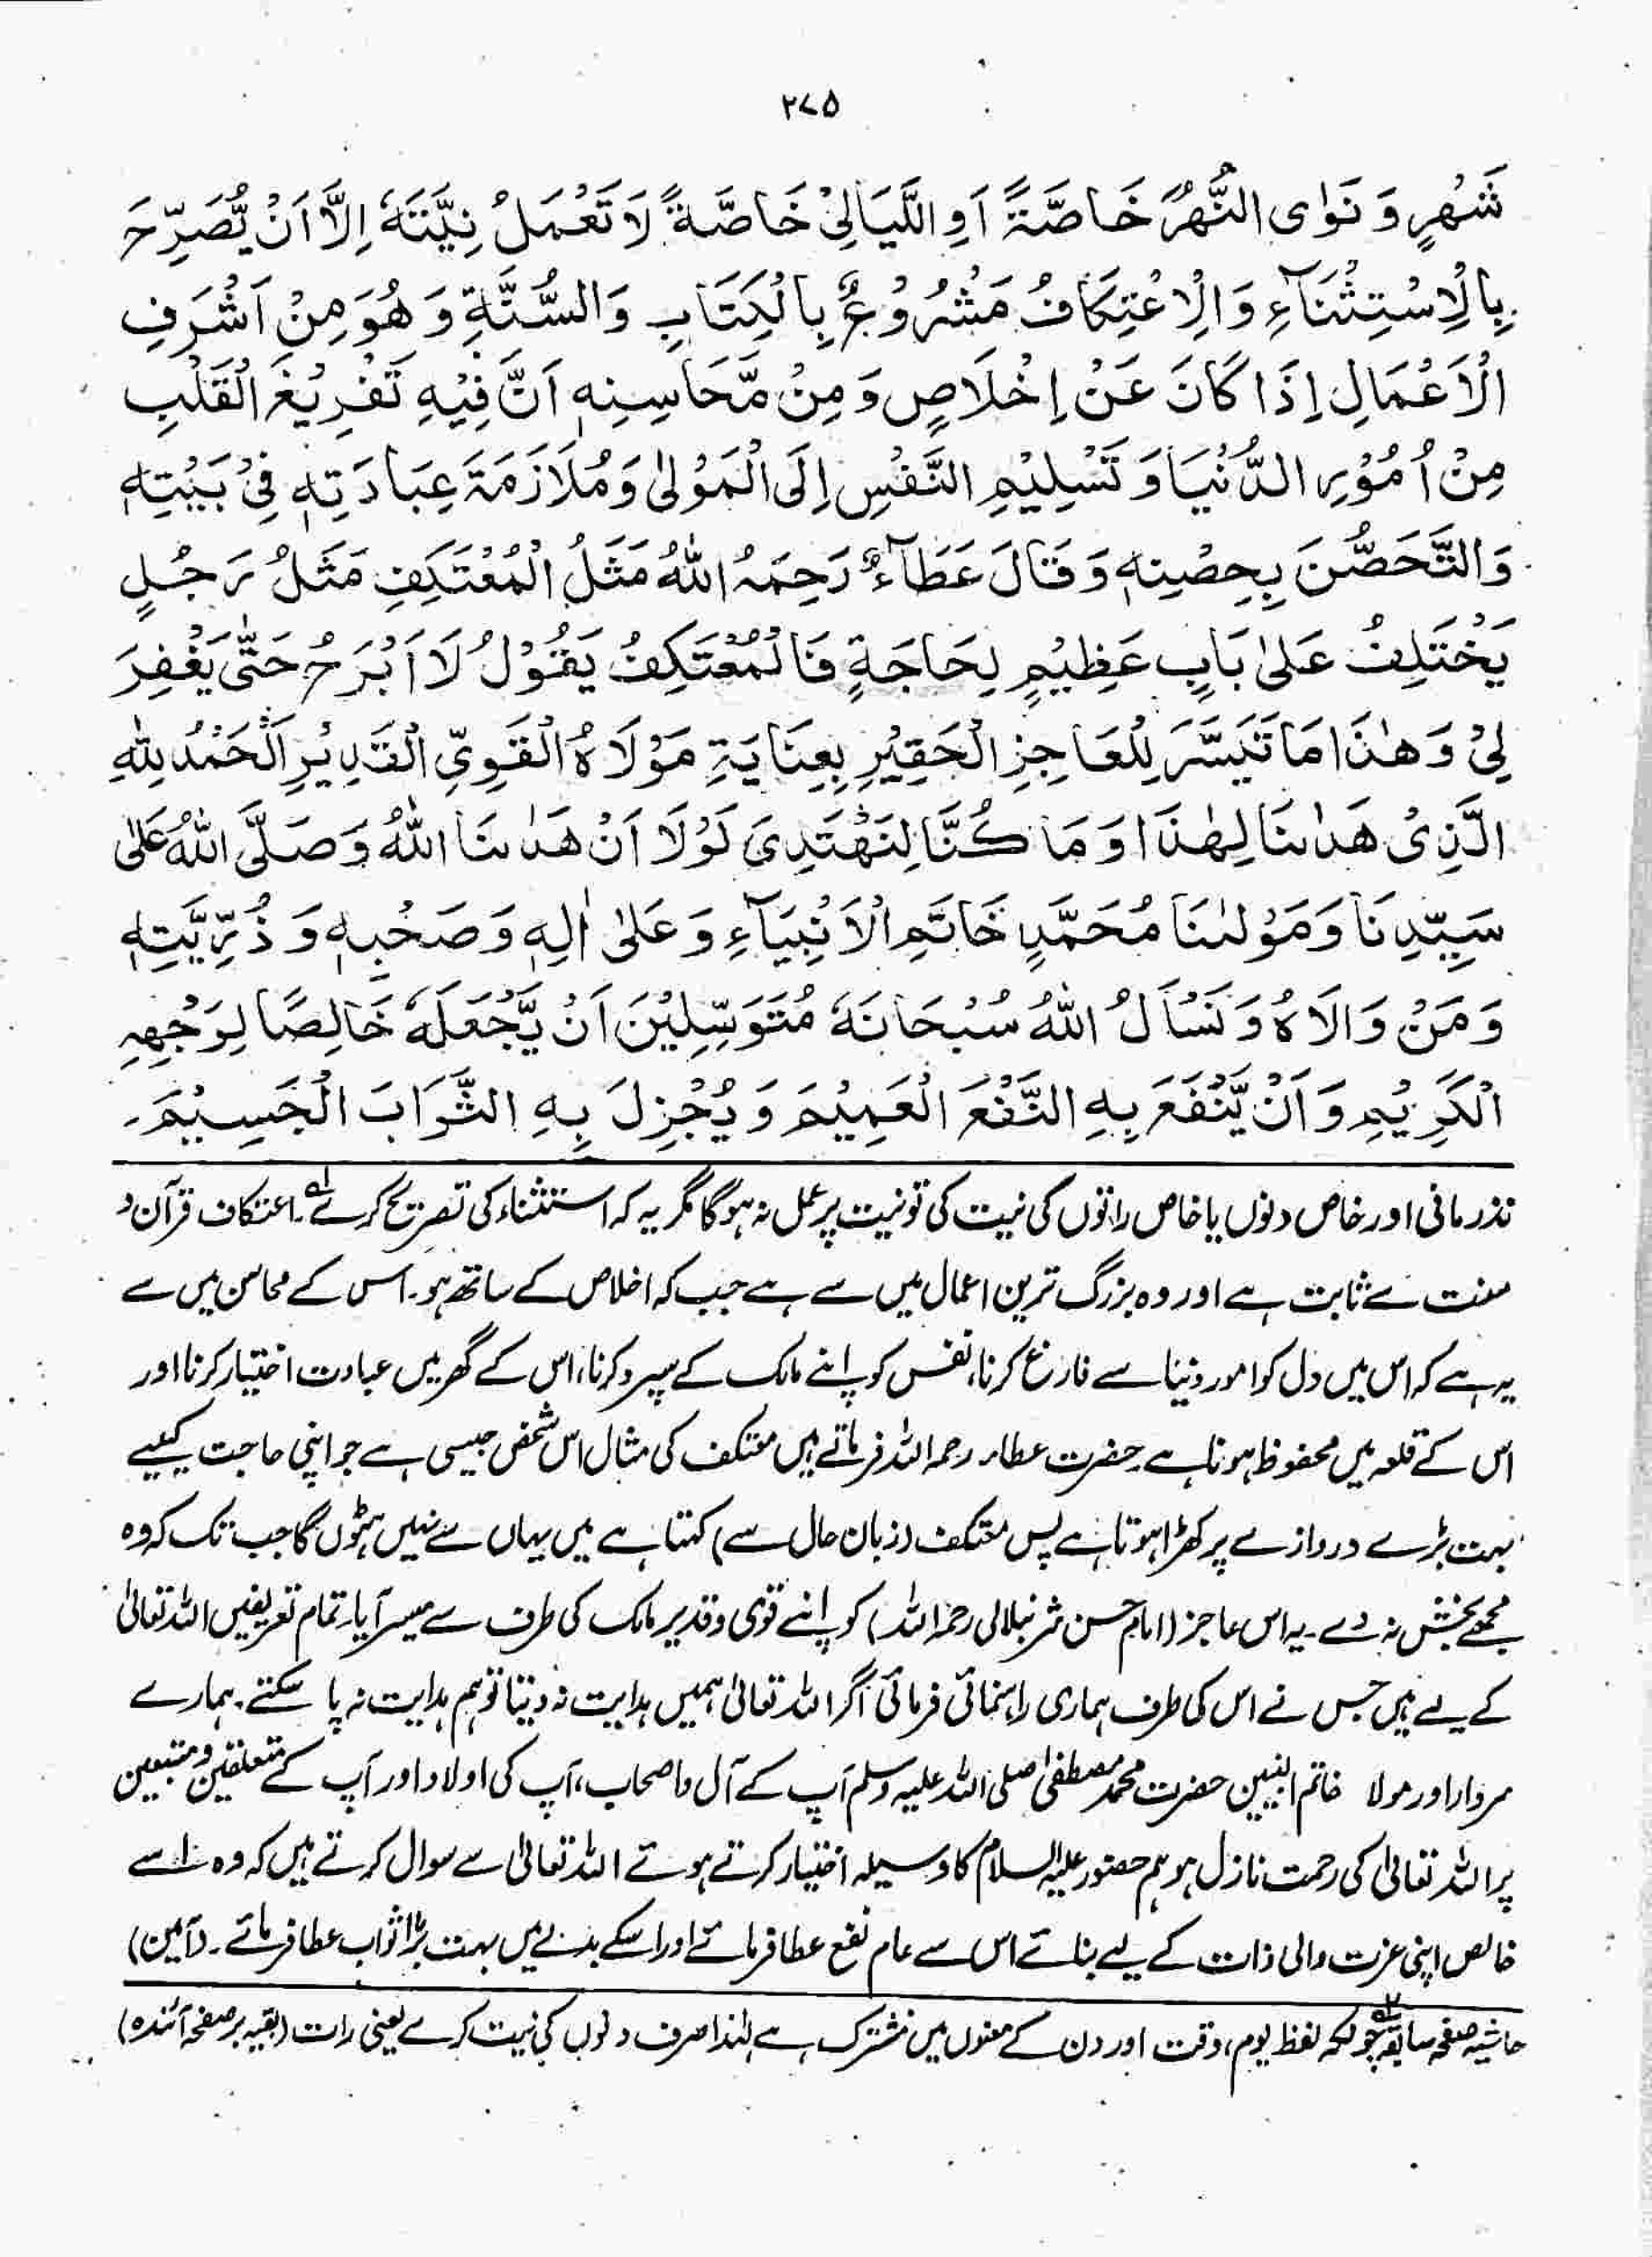 ۲۷۵
شَهْرٍ وَ نَوٰى النُّهُرَ خَاصَّةً اَوِ اللَّيَالِىْ خَاصَّةً لَا تَعْمَلُ نِيَّتَهٗ اِلَّا اَنْ يُّصَرِّحَ
بِالْاِسْتِثْنَآءِ وَالْاِعْتِكَافُ مَشْرُوْعٌ بِالْكِتَابِ وَالسُّنَّةِ وَهُوَ مِنْ اَشْرَفِ
الْاَعْمَالِ اِذَا كَانَ عَنْ اِخْلَاصٍ وَمِنْ مَّحَاسِنِهٖ اَنَّ فِيْهِ تَفْرِيْغَ الْقَلْبِ
مِنْ اُمُوْرِ الدُّنْيَا وَ تَسْلِيْمِ النَّفْسِ اِلَى الْمَوْلٰى وَمُلَازَمَةَ عِبَادَتِهٖ فِىْ بَيْتِهٖ
وَالتَّحَصُّنَ بِحِصْنِهٖ وَقَالَ عَطَآءٌ رَحِمَهُ اللّٰهُ مَثَلُ الْمُعْتَكِفِ مَثَلُ رَجُلٍ
يَخْتَلِفُ عَلٰى بَابٍ عَظِيْمٍ لِحَاجَةٍ فَالْمُعْتَكِفُ يَقُوْلُ لَا اَبْرَحُ حَتّٰى يَغْفِرَ
لِىْ وَهٰذَا مَا تَيَسَّرَ لِلْعَاجِزِ الْحَقِيْرِ بِعِنَايَةِ مَوْلَاهُ الْقَوِىِّ الْقَدِيْرِ اَلْحَمْدُ لِلّٰهِ
الَّذِىْ هَدٰىنَا لِهٰذَا وَمَا كُنَّا لِنَهْتَدِىَ لَوْلَا اَنْ هَدٰىنَا اللّٰهُ وَصَلَّى اللّٰهُ عَلٰى
سَيِّدِنَا وَمَوْلٰىنَا مُحَمَّدٍ خَاتَمِ الْاَنْبِيَآءِ وَعَلٰى اٰلِهٖ وَصَحْبِهٖ وَذُرِّيَّتِهٖ
وَمَنْ وَالَاهُ وَنَسْأَلُ اللّٰهُ سُبْحَانَهٗ مُتَوَسِّلِيْنَ اَنْ يَّجْعَلَهٗ خَالِصًا لِوَجْهِهِ
الْكَرِيْمِ وَاَنْ يَّنْفَعَ بِهِ النَّفْعَ الْعَمِيْمَ وَيُجْزِلَ بِهِ الثَّوَابَ الْجَسِيْمَ۔
نذر مانی اور خاص دنوں یا خاص راتوں کی نیت کی تو نیت پر عمل نہ ہوگا مگر یہ کہ استثناء کی تصریح کرے ۱؎۔ اعتکاف قرآن و
سنت سے ثابت ہے اور وہ بزرگ ترین اعمال میں سے ہے جب کہ اخلاص کے ساتھ ہو۔ اس کے محاسن میں سے
یہ ہے کہ اس میں دل کو امور دنیا سے فارغ کرنا، نفس کو اپنے مالک کے سپرد کرنا، اس کے گھر میں عبادت اختیار کرنا اور
اس کے قلعہ میں محفوظ ہونا ہے۔ حضرت عطاء رحمہ اللہ فرماتے ہیں معتکف کی مثال اس شخص جیسی ہے جو اپنی حاجت کیلیے
بہت بڑے دروازے پر کھڑا ہوتا ہے پس معتکف (زبان حال سے) کہتا ہے میں یہاں سے نہیں ہٹوں گا جب تک کہ وہ
مجھے بخش نہ دے۔ یہ اس عاجز (امام حسن شرنبلالی رحمہ اللہ) کو اپنے قوی و قدیر مالک کی طرف سے میسر آیا۔ تمام تعریفیں اللہ تعالیٰ
کے لیے ہیں جس نے اس کی طرف ہماری راہنمائی فرمائی اگر اللہ تعالیٰ ہمیں ہدایت نہ دیتا تو ہم ہدایت نہ پا سکتے۔ ہمارے
سردار اور مولا خاتم النبیین حضرت محمد مصطفیٰ صلی اللہ علیہ وسلم آپ کے آل و اصحاب، آپ کی اولاد اور آپ کے متعلقین و متبعین
پر اللہ تعالیٰ کی رحمت نازل ہو ہم حضور علیہ السلام کا وسیلہ اختیار کرتے ہوئے اللہ تعالیٰ سے سوال کرتے ہیں کہ وہ اسے
خالص اپنی عزت والی ذات کے لیے بنائے اس سے عام نفع عطا فرمائے اور اسکے بدلے میں بہت بڑا ثواب عطا فرمائے۔ (آمین)
حاشیہ صفحہ سابقہ ۲؎ چونکہ لفظ یوم، وقت اور دن کے معنوں میں مشترک ہے لہٰذا صرف دنوں کی نیت کرے یعنی رات (بقیہ بر صفحہ آئندہ)